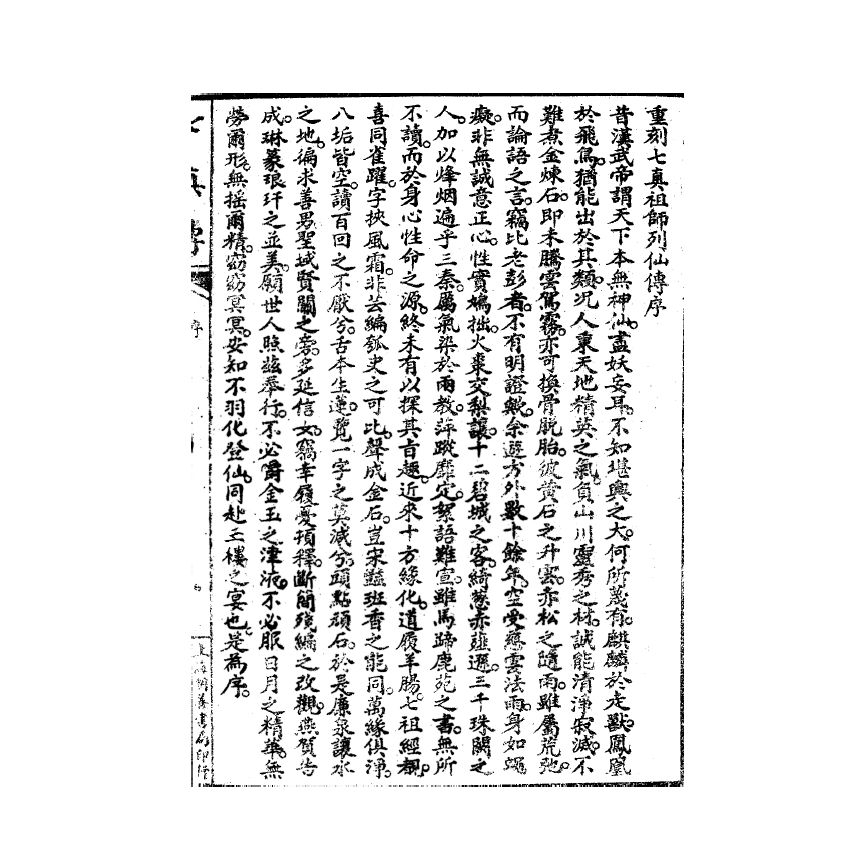 重刻七真祖師列仙傳序
昔漢武帝謂天下本無神仙。盡妖妄耳。不知堪輿之大。何所蔑有。麒麟於走獸。鳳凰
於飛鳥。猶能出於其類。況人稟天地精英之氣。負山川靈秀之材。誠能清淨寂滅。不
難煮金煉石。即未騰雲駕霧。亦可換骨脫胎。彼黃石之升雲。赤松之隨雨。雖屬荒弛。
而論語之言。竊比老彭者。不有明證歟。余遊方外數十餘年。空受慈雲法雨。身如蠅
癡。非無誠意正心。性實鳩拙。火棗交梨。讓十二碧城之客。綺蔥赤薤。遜三千珠闕之
人。加以烽烟遍乎三秦。厲氣染於兩教。萍蹤靡定。絮語難宣。雖馬蹄鹿苑之書。無所
不讀。而於身心性命之源。終未有以探其旨趣。近來十方緣化。道履羊腸。七祖經覩。
喜同雀躍。字挾風霜。非芸編瓠史之可比。聲成金石。豈宋豔班香之能同。萬緣俱淨。
八垢皆空。讀百回之不厭兮。舌本生蓮。覽一字之莫減兮。頭點頑石。於是廉泉讓水
之地。徧求善男。聖域賢關之旁。多延信女。竊幸履憂項釋。斷簡殘編之改觀。燕賀告
成。琳篆琅玕之並美。願世人照茲奉行。不必嚼金玉之津液。不必服日月之精華。無
勞爾形。無搖爾精。窈窈冥冥。安知不羽化登仙。同赴玉樓之宴也。是為序。
七真傳
序
上海翼善書局印行